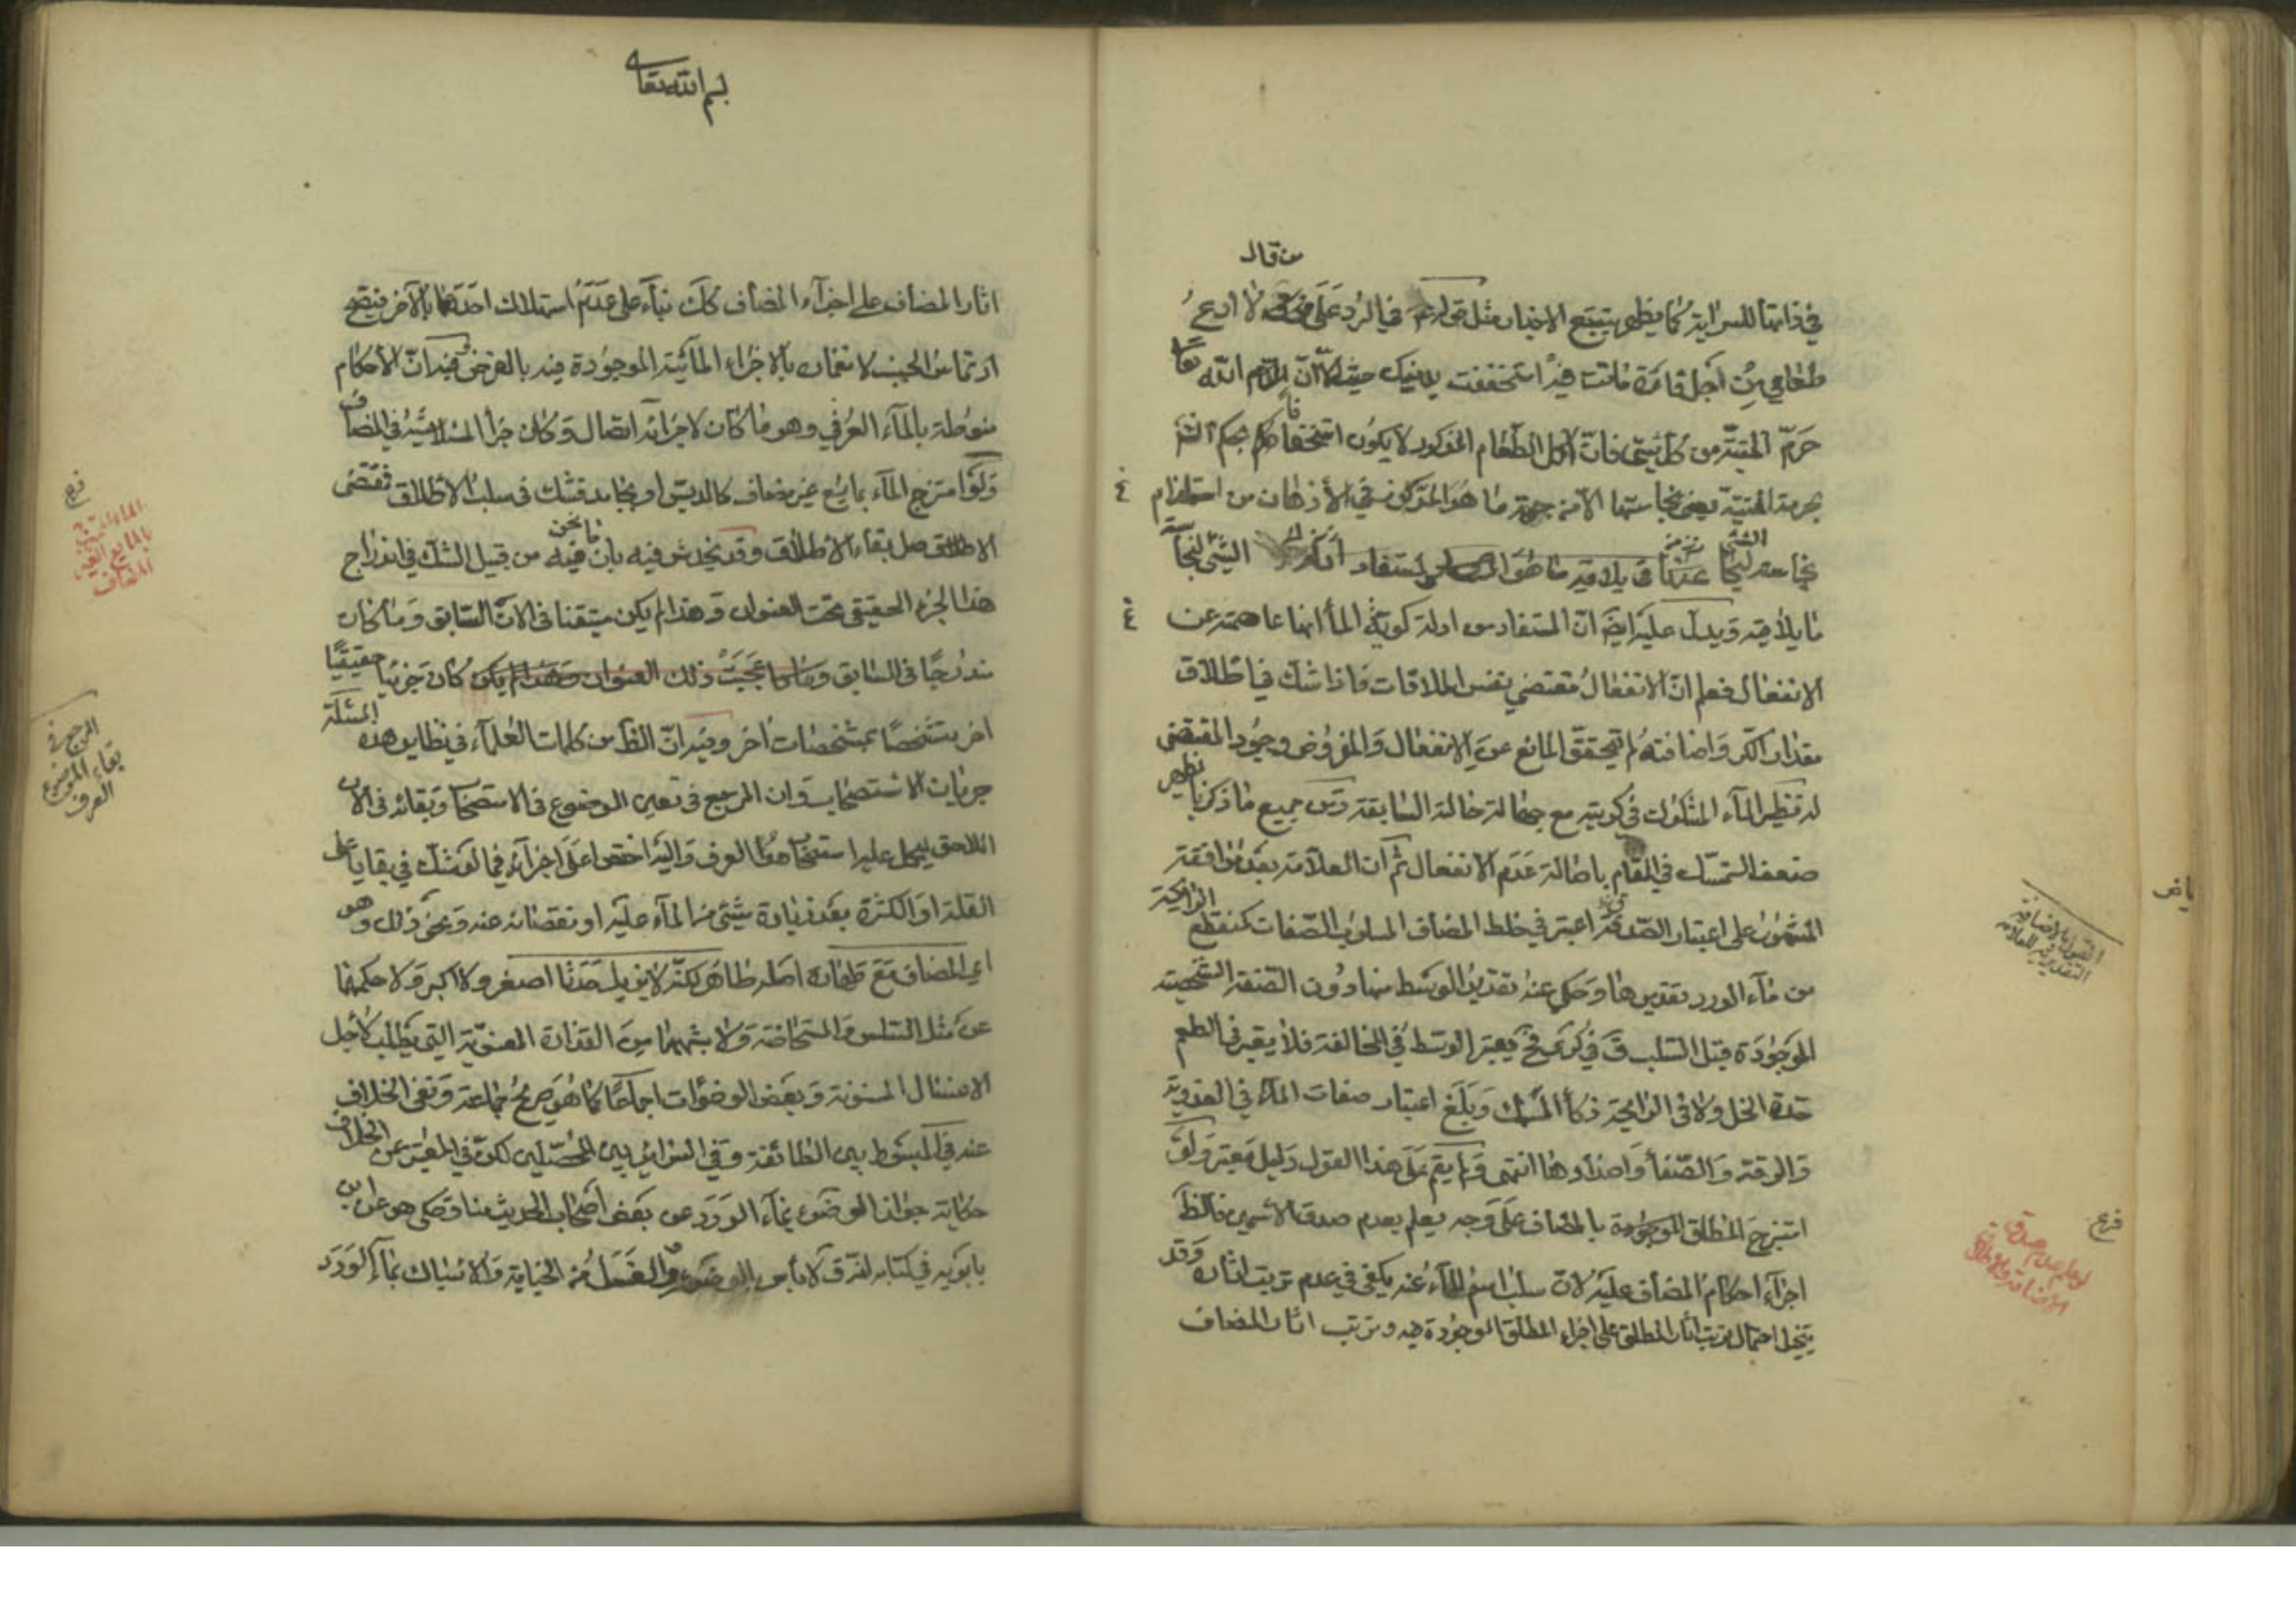 من قال
في ذاتها للسراية كما يظهر بتتبع الاخبار مثل قوله في الرد على لا ادع
طعامي من اجل فارة ماتت فيه استخففت بدينك حيث ان الله تعا
حرم الميتة من كل شئ فان اكل الطعام المذكور لا يكون استخفافا بحكم الش
بحرمة الميتة يعني نجاستها الا من جهة ما هو المركوز في الأذهان من استلزام
نجاسة الشئ يلاقيه ما هو المستفاد الشئ لنجاسة
ما يلاقيه ويدل عليه ايض ان المستفاد من ادلة كرية الماء انها عاصمة عن
الانفعال فعلم ان الانفعال مقتضى نفس الملاقات فاذا شك في اطلاق
مقدار الكر واضافته لم يتحقق المانع عن الانفعال والمفروض وجود المقتضي
له نظير الماء المشكوك في كريته مع جهالة حالة السابقة ومن جميع ما ذكرنا يظهر
ضعف التمسك في المقام باصالة عدم الانفعال ثم ان العلامة بعد موافقة
المشهور على اعتبار الصدق اعتبر في خلط المضاف المسلوب الصفات كمنقطع الرائحة
من ماء الورد تقديرها وحكي عنه تقدير الوسط منها دون الصفة الشخصية
الموجودة قبل السلب وفي كرى فح يعتبر الوسط في المخالفة فلا يعتبر في الطعم
حدة الخل ولا في الرايحة ذكاء المسك وبلغ اعتبار صفات الماء في العذوبة
والرقة والصفا واضدادها انتهى ولم يقم على هذا القول دليل معتبر ولو
امتزج المطلق الموجودة بالمضاف على وجه يعلم بعدم صدق الاسمين فالظ
اجراء احكام المضاف عليه لان سلب اسم الماء عنه يكفي في عدم ترتب اثاره وقد
يتخيل احتمال ترتب اثار المطلق على اجزاء المطلق الموجودة فيه وترتب اثار المضاف
القول بالاضافة
التقديرية للعلامة
فرع
لو علم عدم صدق
الاضافة والاطلاق
بسم الله تعالى
اثار المضاف على اجزاء المضاف كك بناء على عدم استهلاك احدهما بالآخر فيصح
ارتماس الجنب لانغماره بالاجزاء المائية الموجودة فيه بالفرض وفيه ان الأحكام
منوطة بالماء العرفي وهو ما كان لاجزائه اتصال وكان جزأ المتلاشية في المضاف
ولو امتزج الماء بمايع غير مضاف كالدبس او بجامد فشك في سلب الاطلاق فمقتضى
الاطلاق اصل بقاء الاطلاق وقد يخدش فيه بان ما نحن فيه من قبيل الشك في اندراج
هذا الجزء الحقيقي تحت العنوان وهذا لم يكن متيقنا في الان السابق وما كان
مندرجا في السابق تحت ذلك العنوان كان جزئيا حقيقيا
اخر متشخصا بمشخصات اخر وفيه ان الظ من كلمات العلماء في نظاير هذه المسئلة
جريان الاستصحاب وان المرجع في تعيين الموضوع في الاستصحاب وبقائه في الان
اللاحق ليحمل عليه استصحابا هو العرف على اجزائه فيما لو شك في بقاياه على
القلة او الكثرة بعد زيادة شئ من الماء عليه او نقصانه عنه ونحو ذلك وهو
اي المضاف مع طهارة اصله طاهر لكنه لا يزيل حدثا اصغر ولا اكبر ولا حكمهما
عن مثل السلس والمستحاضة ولا يشبههما من القذارة المعنوية التي يطلب لاجل
الاغسال المسنونة وبعض الوضوات اجماعا كما هو صريح جماعة ونفى الخلاف
عنه في المبسوط بين الطائفة وفي السرائر بين المحصلين لكن في المعتبر عن الخلاف
حكاية جواز الوضوء بماء الورد عن بعض اصحاب الحديث منا وحكى هو عن ابن
بابويه في كتابه انه قال لا بأس بالوضوء والغسل من الجنابة والاستياك بماء الورد
فرع
الماء الممتزج
بالمايع الغير
المضاف
المرجع في
بقاء الموضوع
العرف